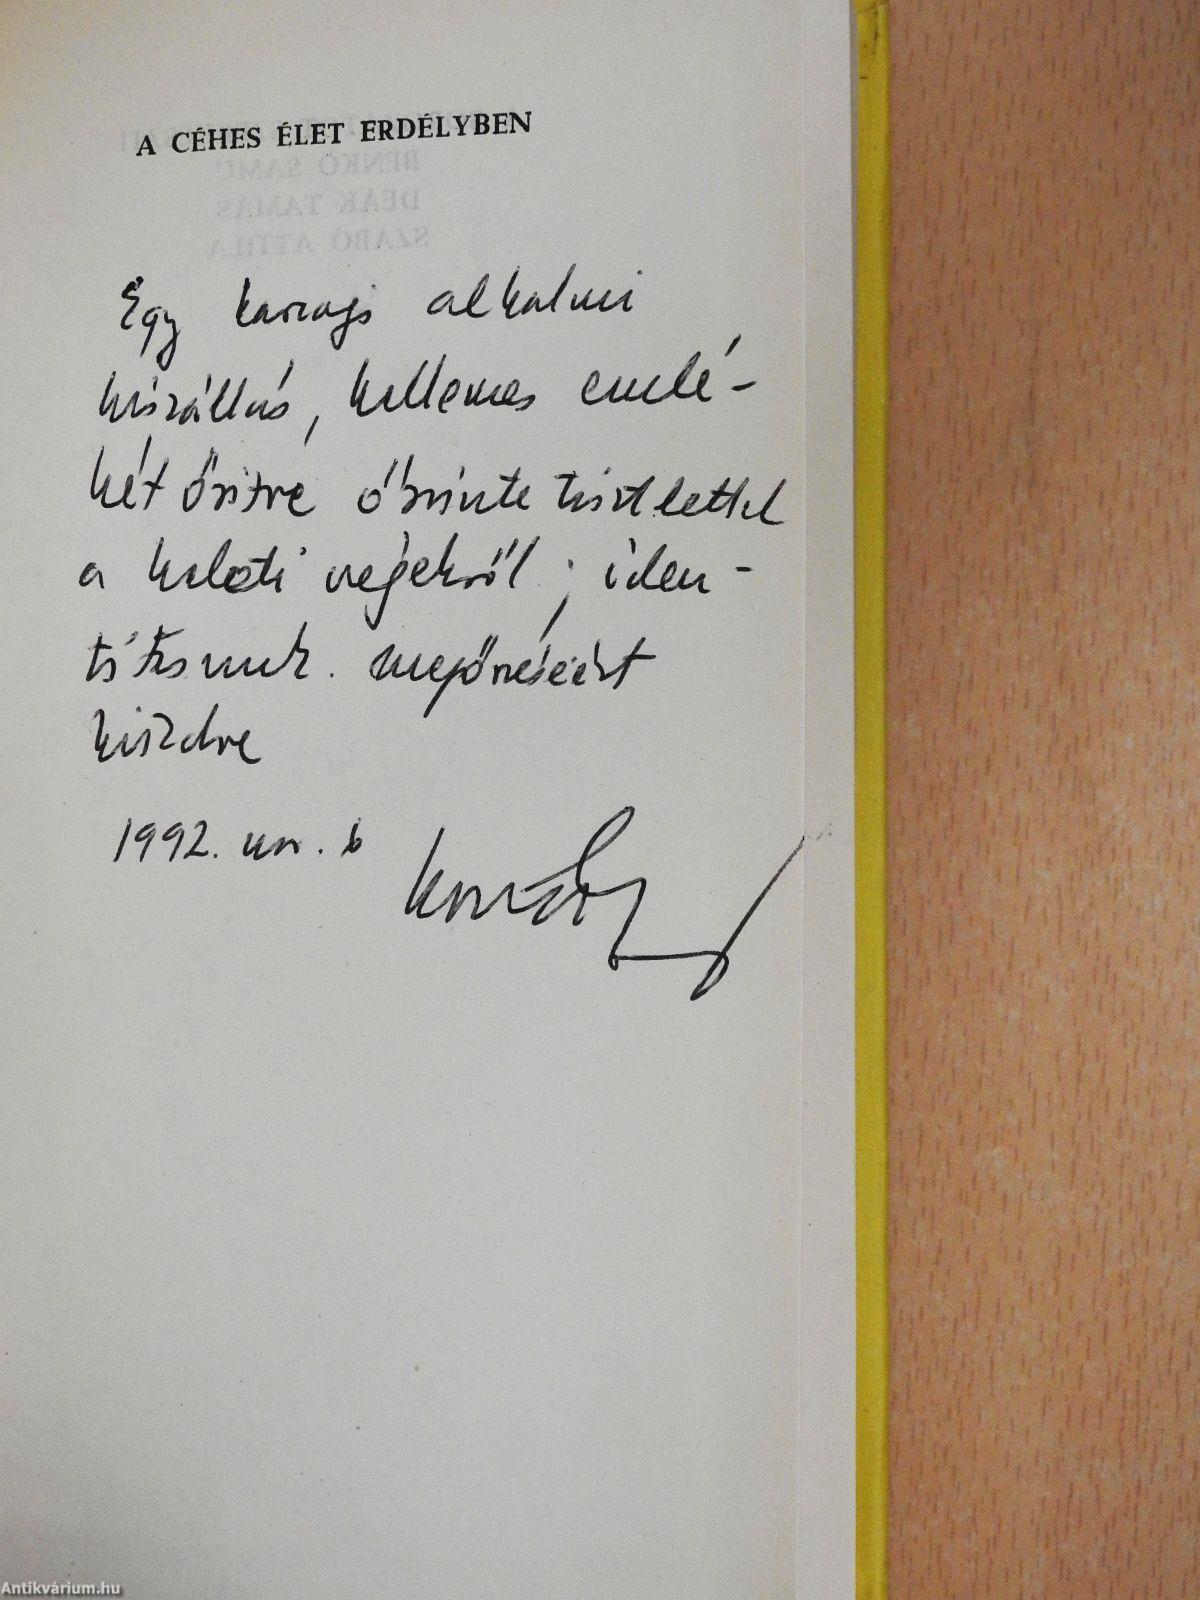 A CÉHES ÉLET ERDÉLYBEN
BENKŐ SAMU
DEÁK TAMÁS
SZABÓ ATTILA
Egy karcagi alkalmi
kiszállás, kellemes emlé-
két őrizve őszinte tisztelettel
a keleti végekről, iden-
titásunk megőrzéséért
küzdve
1992. nov. 6
Antikvárium.hu